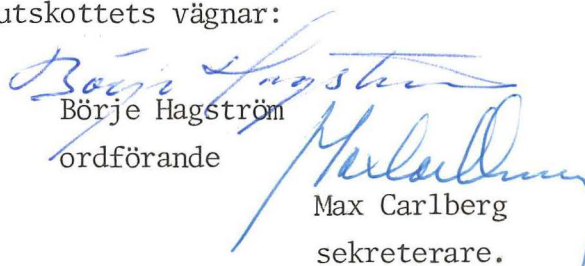 utskottets vägnar:
Börje Hagström
Börje Hagström
ordförande
Max Carlberg
Max Carlberg
sekreterare.